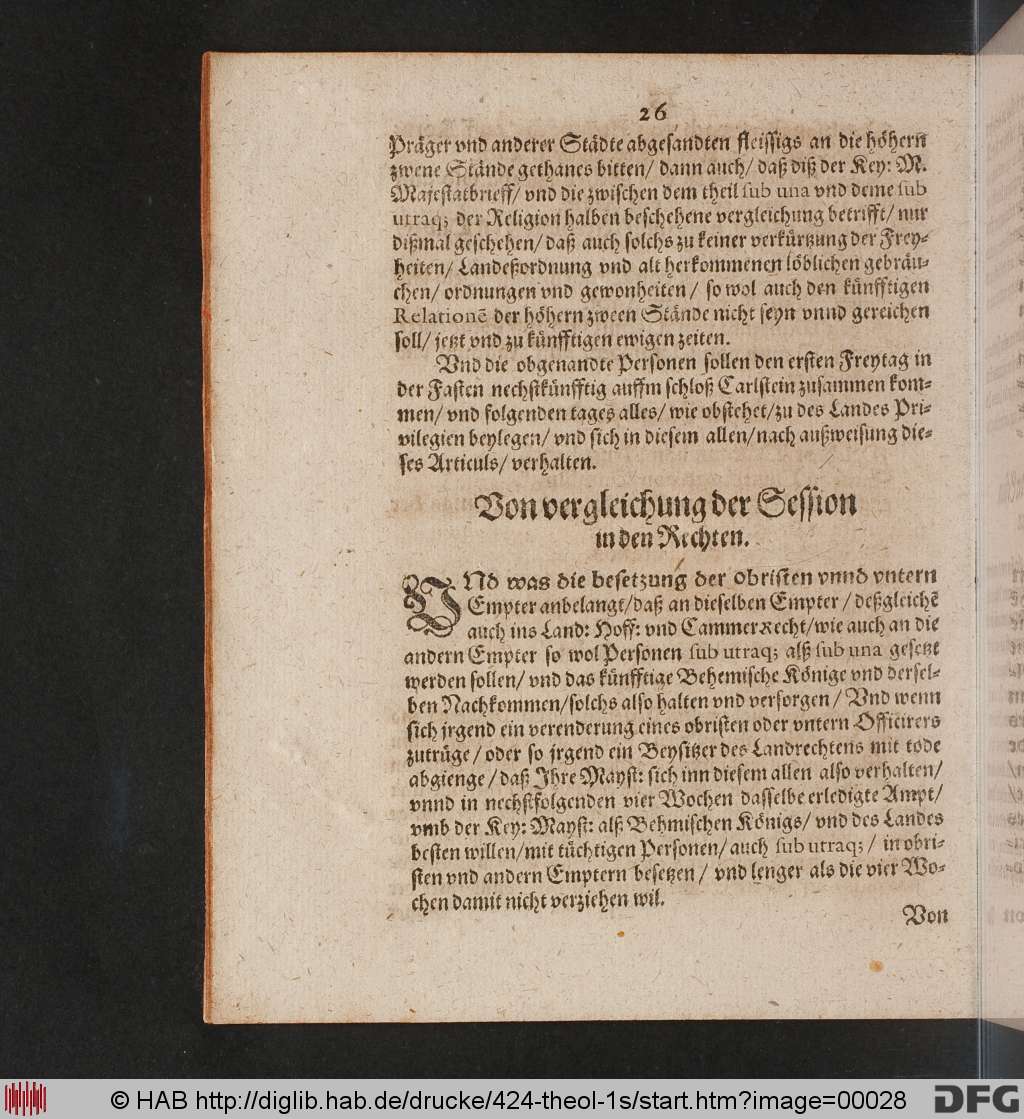 26
Präger vnd anderer Städte abgesandten fleissigs an die höhern
zwene Stände gethanes bitten/ dann auch/ daß diß der Key: M.
Majestatbrieff/ vnd die zwischen dem theil sub una vnd deme sub
utraq; der Religion halben beschehene vergleichung betrifft/ nur
dißmal geschehen/ daß auch solchs zu keiner verkürtzung der Frey-
heiten/ Landeßordnung vnd alt herkommenen löblichen gebräu-
chen/ ordnungen vnd gewonheiten/ so wol auch den künfftigen
Relationē der höhern zween Stände nicht seyn vnnd gereichen
soll/ jetzt vnd zu künfftigen ewigen zeiten.
Vnd die obgenandte Personen sollen den ersten Freytag in
der Fasten nechstkünfftig auffm schloß Carlstein zusammen kom-
men/ vnd folgenden tages alles/ wie obstehet/ zu des Landes Pri-
vilegien beylegen/ vnd sich in diesem allen/ nach außweisung die-
ses Articuls/ verhalten.
Von vergleichung der Session
in den Rechten.
VNd was die besetzung der obristen vnnd vntern
Empter anbelangt/ daß an dieselben Empter/ deßgleichē
auch ins Land: Hoff: vnd Cammer Recht/ wie auch an die
andern Empter so wol Personen sub utraq; alß sub una gesetzt
werden sollen/ vnd das künfftige Behemische Könige vnd dersel-
ben Nachkommen/ solchs also halten vnd versorgen/ Vnd wenn
sich jrgend ein verenderung eines obristen oder vntern Officirers
zutrüge/ oder so jrgend ein Beysitzer des Landrechtens mit tode
abgienge/ daß Ihre Mayst: sich inn diesem allen also verhalten/
vnnd in nechstfolgenden vier Wochen dasselbe erledigte Ampt/
vmb der Key: Mayst: alß Behmischen Königs/ vnd des Landes
besten willen/ mit tüchtigen Personen/ auch sub utraq;/ in obri-
sten vnd andern Emptern besetzen/ vnd lenger als die vier Wo-
chen damit nicht verziehen wil.
Von
© HAB http://diglib.hab.de/drucke/424-theol-1s/start.htm?image=00028
DFG